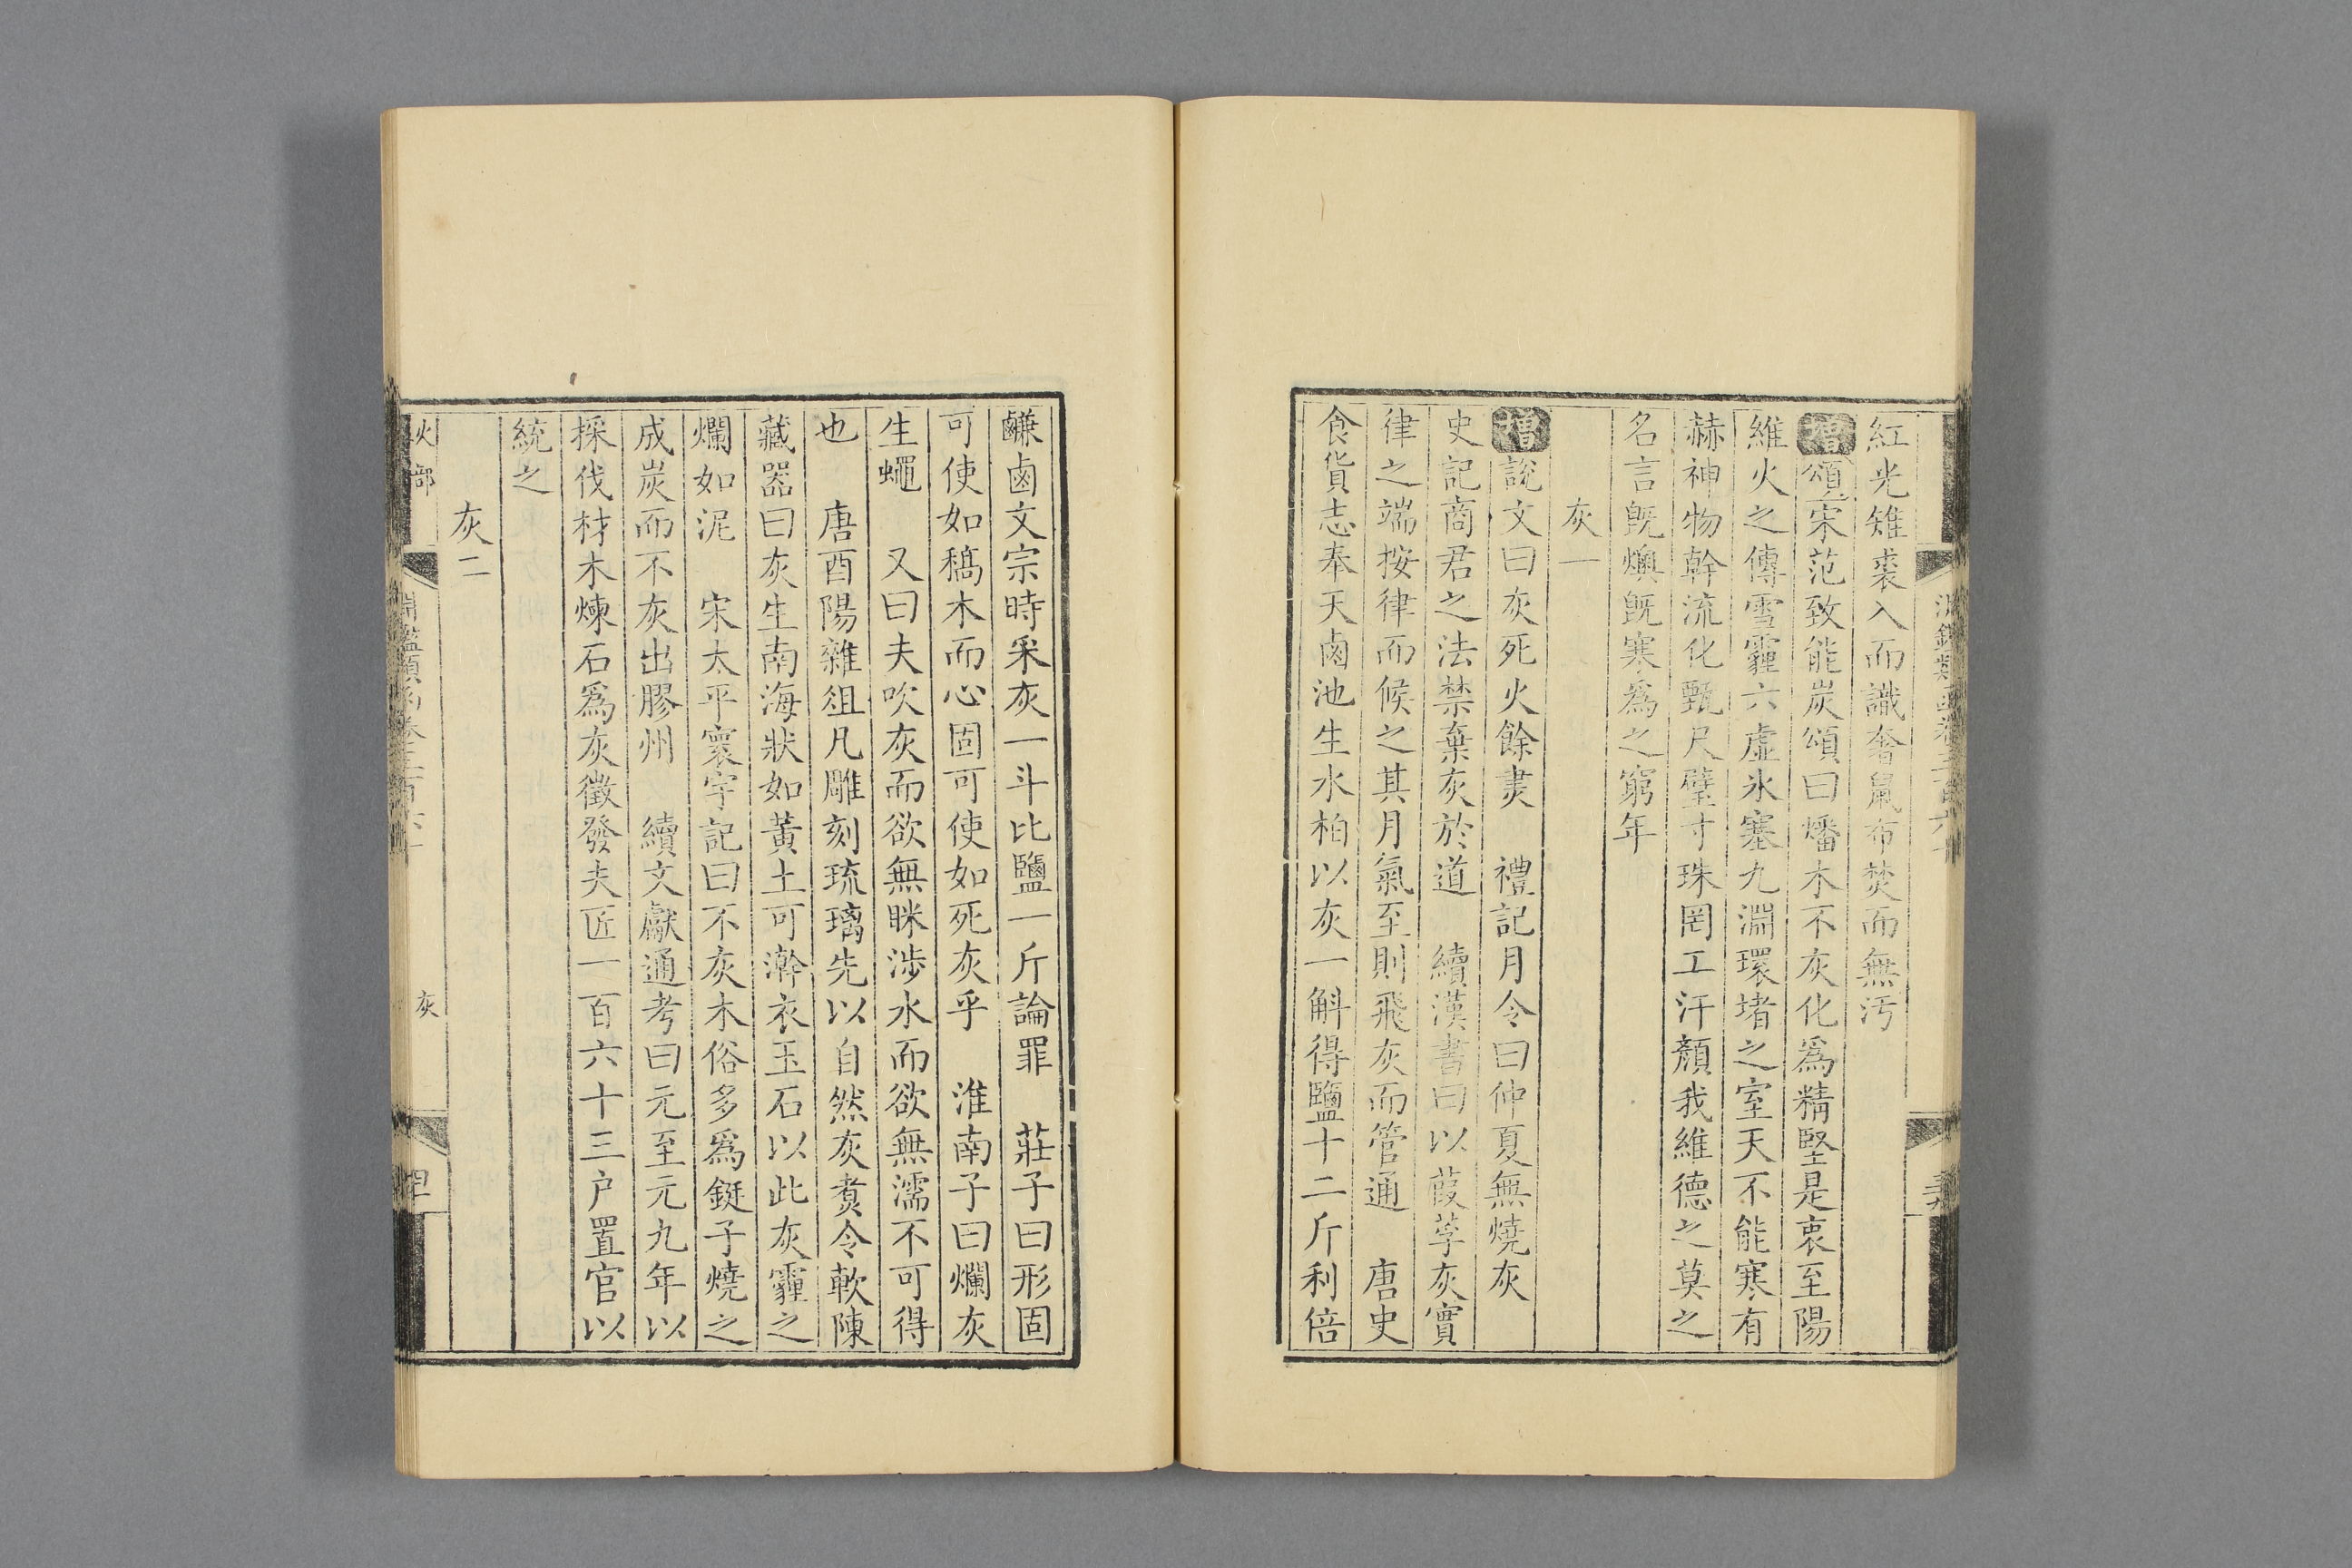 紅光雉裘入而識奢鼠布焚而無汚
增頌宋范致能炭頌曰燔木不灰化爲精堅是衷至陽
維火之傳雪霾六虛氷塞九淵環堵之室天不能寒有
赫神物幹流化甄尺璧寸珠罔工汗顏我維德之莫之
名言旣燠旣寒爲之窮年
灰一
增說文曰灰死火餘燼 禮記月令曰仲夏無燒灰
史記商君之法禁棄灰於道 續漢書曰以葭莩灰實
律之端按律而候之其月氣至則飛灰而管通 唐史
食貨志奉天鹵池生水柏以灰一斛得鹽十二斤利倍
鹻鹵文宗時采灰一斗比鹽一斤論罪 莊子曰形固
可使如稿木而心固可使如死灰乎 淮南子曰爛灰
生蠅 又曰夫吹灰而欲無眯涉水而欲無濡不可得
也 唐酉陽雜俎凡雕刻琉璃先以自然灰煑令軟陳
藏器曰灰生南海狀如黃土可澣衣玉石以此灰霾之
爛如泥 宋太平寰宇記曰不灰木俗多爲鋌子燒之
成炭而不灰出膠州 續文獻通考曰元至元九年以
採伐材木煉石爲灰徵發夫匠一百六十三户置官以
統之
灰二
火部
淵鑑類函卷三百六十
灰